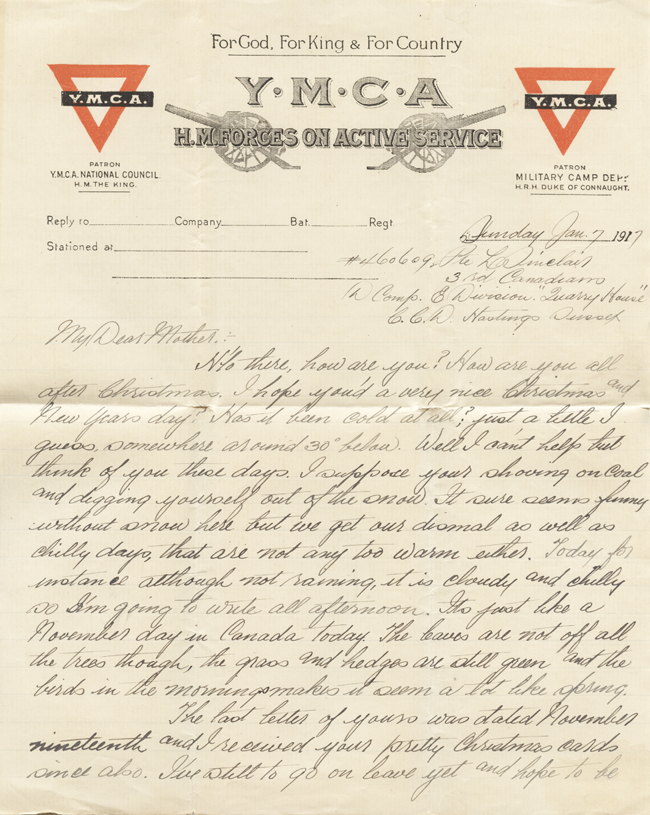 For God, For King & For Country
Y.M.C.A.
Y·M·C·A
Y.M.C.A.
H.M. FORCES ON ACTIVE SERVICE
PATRON
Y.M.C.A. NATIONAL COUNCIL
H.M. THE KING.
PATRON
MILITARY CAMP DEPT
H.R.H. DUKE OF CONNAUGHT.
Reply to Company Bat. Regt
Stationed at
Sunday Jan. 7 1917
#460609, Pte L Sinclair
3rd Canadians
D Comp. E Division "Quarry House"
C.C.D. Hastings Sussex
My Dear Mother:-
H'lo there, how are you? How are you all
after Christmas. I hope you'd a very nice Christmas and
New Years day? Has it been cold at all? just a little I
guess, somewhere around 30° below. Well I cant help but
think of you these days. I suppose your shoving on coal
and digging yourself out of the snow. It sure seems funny
without snow here but we get our dismal as well as
chilly days, that are not any too warm either. Today for
instance although not raining, it is cloudy and chilly
so I'm going to write all afternoon. Its just like a
November day in Canada today. The leaves are not off all
the trees though, the grass and hedges are still green and the
birds in the mornings makes it seem a lot like spring.
The last letter of yours was dated November
nineteenth and I received your pretty Christmas cards
since also. I've still to go on leave yet and hope to be